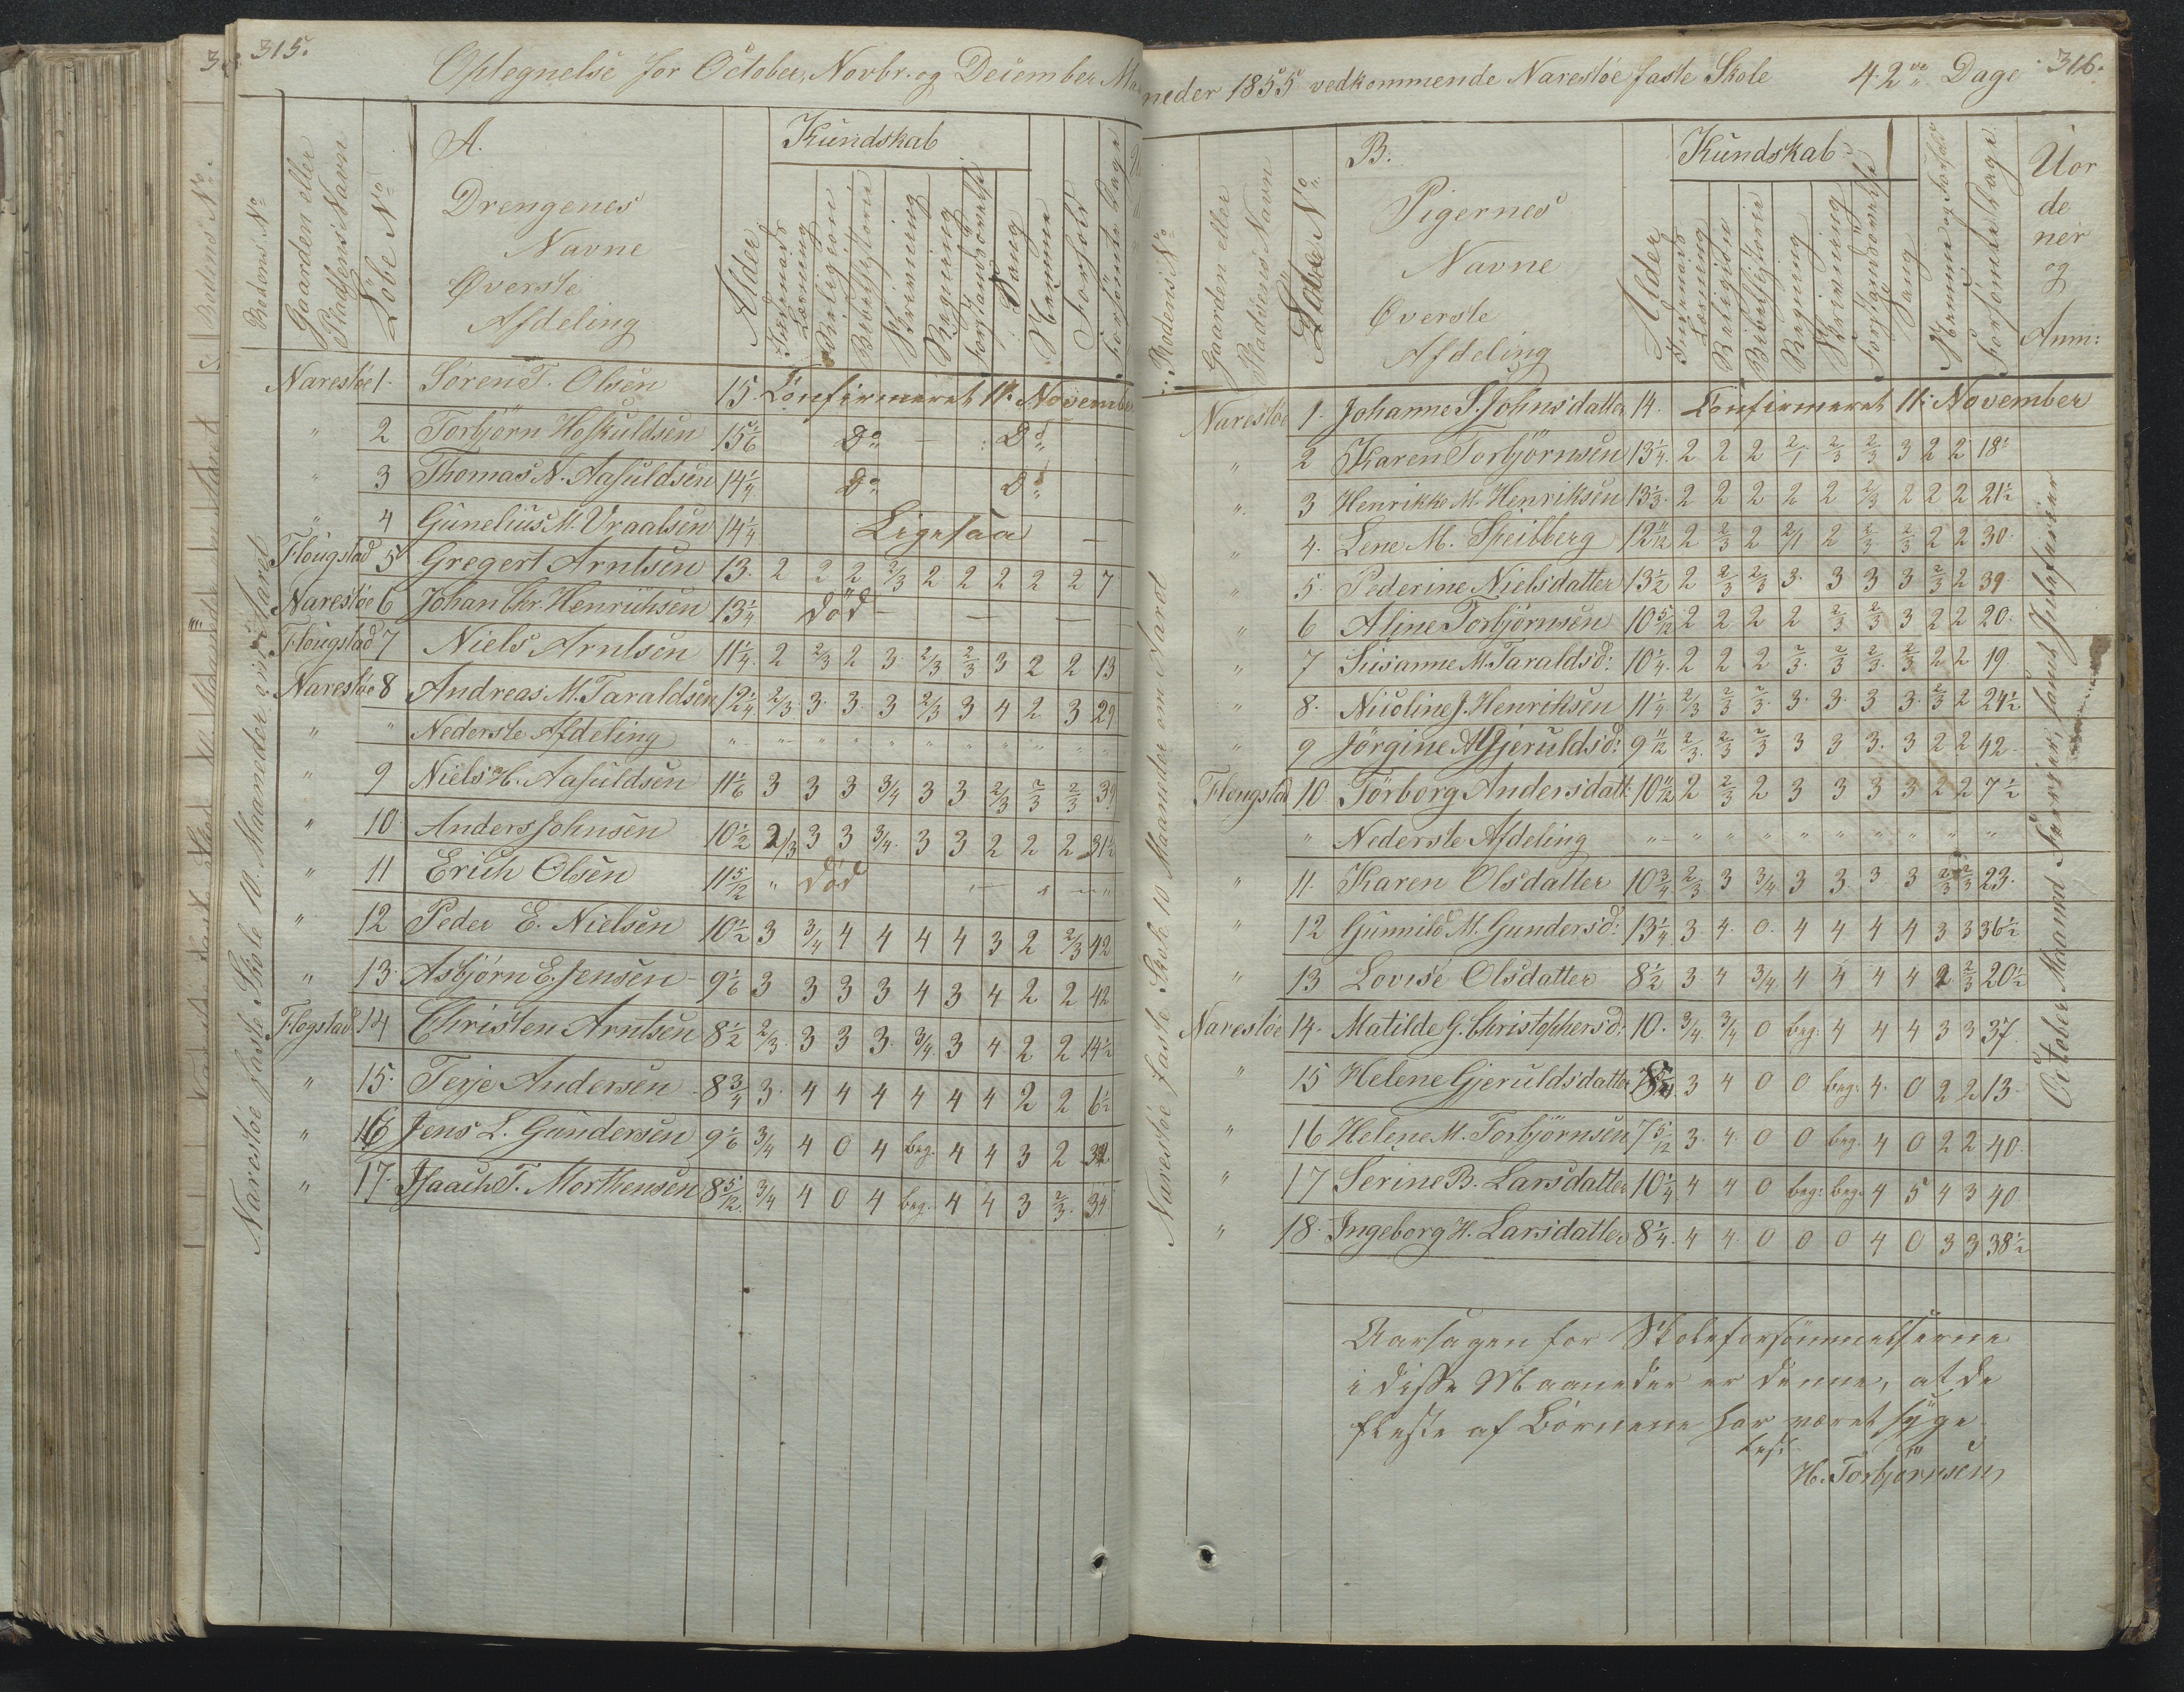 315.
Optegnelse for October, Novbr. og December Maaneder 1855 vedkommende Narestöe faste Skole 42 Dage
316.
Rodens No
Gaarden eller Pladsens Navn
Löbe No
A.
Drengenes
Navne
Øverste
Afdeling
Alder
Kundskab
Indenads Læsning
Religion
Bibelhistorie
Skrivning
Regning
Forstandsövelse
Sang
Nemme
Forhold
Forsömte Dage
Narestöe 1. Sören T. Olsen 15 Confirmeret 11. November
" 2 Torbjörn Hofkuldsen 15 1/6 Do — Do
" 3 Thomas N. Aasuldsen 14 1/4 Do Do
" 4 Gunelius M. Vraalsen 14 1/4 Ligesaa —
Flougstad 5 Gregert Arntsen 13. 2 2 2 2/3 2 2 2 2 2 7
Narestöe 6 Johan Chr. Henriksen 13 1/4 död — — —
Flougstad 7 Niels Arntsen 11 1/4. 2 2/3 2 3 2/3 2/3 3 2 2 13
Narestöe 8 Andreas M. Taraldsen 12 1/4 2/3 3. 3. 3 2/3 3 4 2 3 29
" " Nederste Afdeling " " " " " " " " " "
" 9 Niels H. Aasuldsen 11 1/6 3 3 3 3/4 3 3 2/3 2/3 2/3 39
" 10 Anders Johnsen 10 1/2 2/3 3 3 3/4. 3 3 2 2 2 31 1/2
" 11 Erich Olsen 11 5/12 " död
" 12 Peder E. Nielsen 10 1/2 3 3/4 4 4 4 4 3 2 2/3 42
" 13. Asbjörn E. Jensen 9 1/6 3 3 3 3 4 3 4 2 2 42
Flogstad 14 Christen Arntsen 8 1/2 2/3. 3 3 3. 3/4. 3 4 2 2 14 1/2
" 15. Terje Andersen 8 3/4 3. 4 4 4 4 4 4 2 2 6 1/2
" 16 Jens L. Gundersen 9 1/6 3/4 4 0 4 beg. 4 4 3 2 32
" 17. Isaach T. Morthensen 8 5/12. 3/4 4 0 4 beg. 4 4 3 2/3. 39
Narestöe faste Skole 10. Maaneder om Aaret
Rodens No
Gaarden eller Pladsens Navn
Löbe No
B.
Pigernes
Navne
Øverste
Afdeling
Alder
Kundskab
Indenads Læsning
Religion
Bibelhistorie
Regning
Skrivning
Forstandsövelse
Sang
Nemme og Forhold
Forsömte Dage
Uordener og Anm:
Narestöe 1. Johanne S. Johnsdatter 14. Confirmeret 11. November
" 2 Karen Torbjörnsen 13 1/4. 2 2 2 2/1 2/3 2/3 3 2 2 18 1/2
" 3 Henrikke M. Henriksen 13 1/3. 2 2 2 2 2 2/3 2 2 2 21 1/2
" 4. Lene M. Speilberg 12 11/12 2 2/3 2 2/1 2 2/3 2/3 2 2 30.
" 5. Pederine Nielsdatter 13 1/2 2 2/3 2/3 3. 3 3 3 2/3 2 39.
" 6 Aline Torbjörnsen 10 5/12 2 2 2 2 2/3 2/3 3 2 2 20.
" 7 Susanne M. Taraldsd: 10 1/4. 2 2 2 2/3. 2/3 2/3. 2/3 2 2 19.
" 8. Nicoline J. Henriksen 11 1/4 2/3 2/3 2/3. 3. 3. 3 3. 2/3 2 24 1/2
" 9 Jörgine A. Gjeruldsd: 9 11/12 2/3. 2/3 2/3 3 3 3. 3 2 2 42.
Flougstad 10 Törborg Andersdatt: 10 11/12 2 2/3 2 3 3 3 3 2 2 7 1/2
" Nederste Afdeling " " " " " " " " "
" 11. Karen Olsdatter 10 3/4 2/3 3 3/4 3 3 3 3 2/3 2/3 23.
" 12 Gunnild M. Gundersd: 13 1/4 3 4. 0. 4 4 4 4 3 3 36 1/2
" 13 Lovise Olsdatter 8 1/2 3. 4 3/4 4 4 4 4 2 2/3 20 1/2
Narestöe 14. Matilde G. Christophersd: 10. 3/4 3/4 0 beg. 4 4 4 3 3 37.
" 15 Helene Gjeruldsdatter 8 1/4 3 4 0 0 beg. 4. 0 2 2 13.
" 16 Helene M. Torbjörnsen 7 5/12 3. 4. 0 0 beg. 4 0 2 2 40.
" 17 Serine B. Larsdatter 10 1/4 4 4 0 beg: beg. 4 5 4 3 40.
" 18. Ingeborg H. Larsdatter 8 1/4. 4 4. 0 0 0 4 0 3 3 38 1/2
Narestöe faste Skole 10 Maaneder om Aaret
October Maaned
Aarsagen for Skoleforsömmelserne
i disse Maaneder er denne, at de
fleste af Börnene har været syge
test
H. Torbjörnsen